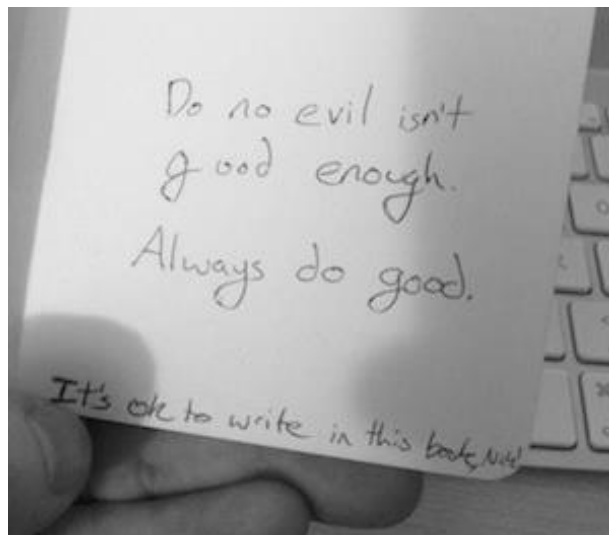 Do no evil isn't
good enough.
Always do good.
It's ok to write in this book,